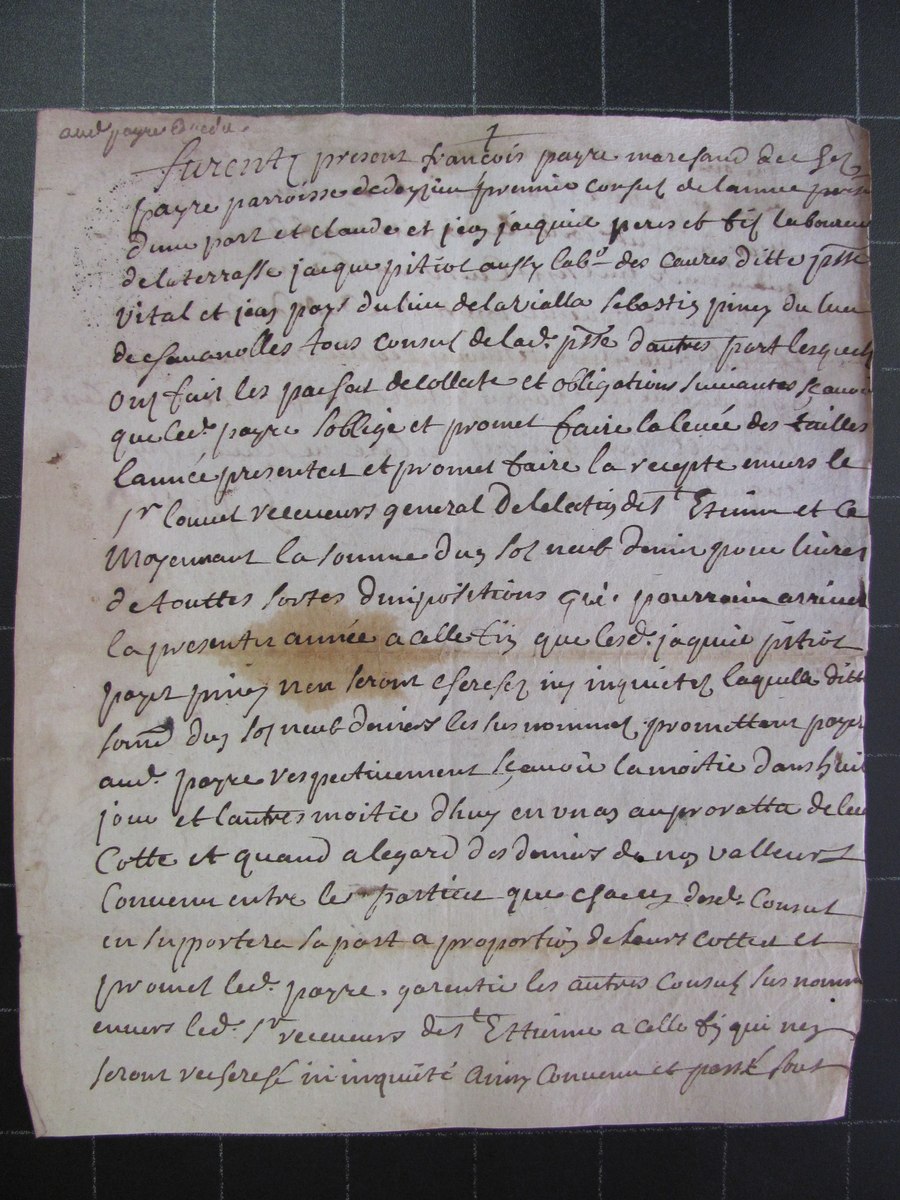 aud. payre
furentz present françois payre marchand de chez
payre parroisse de doyzieu premier consul de lannee pnte
dune part et claude et jean jacquier peres et fis laboureur
de la terrasse jacque pitiot aussy labr. des caures ditte psse
vital et jean pays du lieu de la vialla sebastien piney du lieu
de chavanolles tous consul de lad. psse dautres part lesquels
ont fait les pacsat de collecte et obligations suivantes sçavoir
que led. payre soblige et promet faire la levée des tailles
lannée presentet et promet faire la recepte envers le
sr. receveurs general de lelection de st Etienne et ce
Moyennant la somme dun sol neuf denier pour livres
de touttes sortes dimpositions qui pourroint arriver
la presenter année a celle fin que lesd. jaquier pitiot
payet piney nen seront cherchez ny inquietez laquelle ditte
some dun sol neuf deniers les sus nommez promettent payer
aud. payre respectivement sçavoir la moitie dans huit
jour et lautres moitie dhuy en un an au provatta de leur
Cotte et quand a legard des deniers de non valleurs
Convenu entre les parties que chacun desd. Consul
en supportera sa part a proportion de leurs cottes et
promet led. payre garentir les autres Consulz sus nomm
envers led. sr receveurs de st Estienne a celle fin qui nen
seront recherché ni inquiété Ainsy Convenu et passé sout